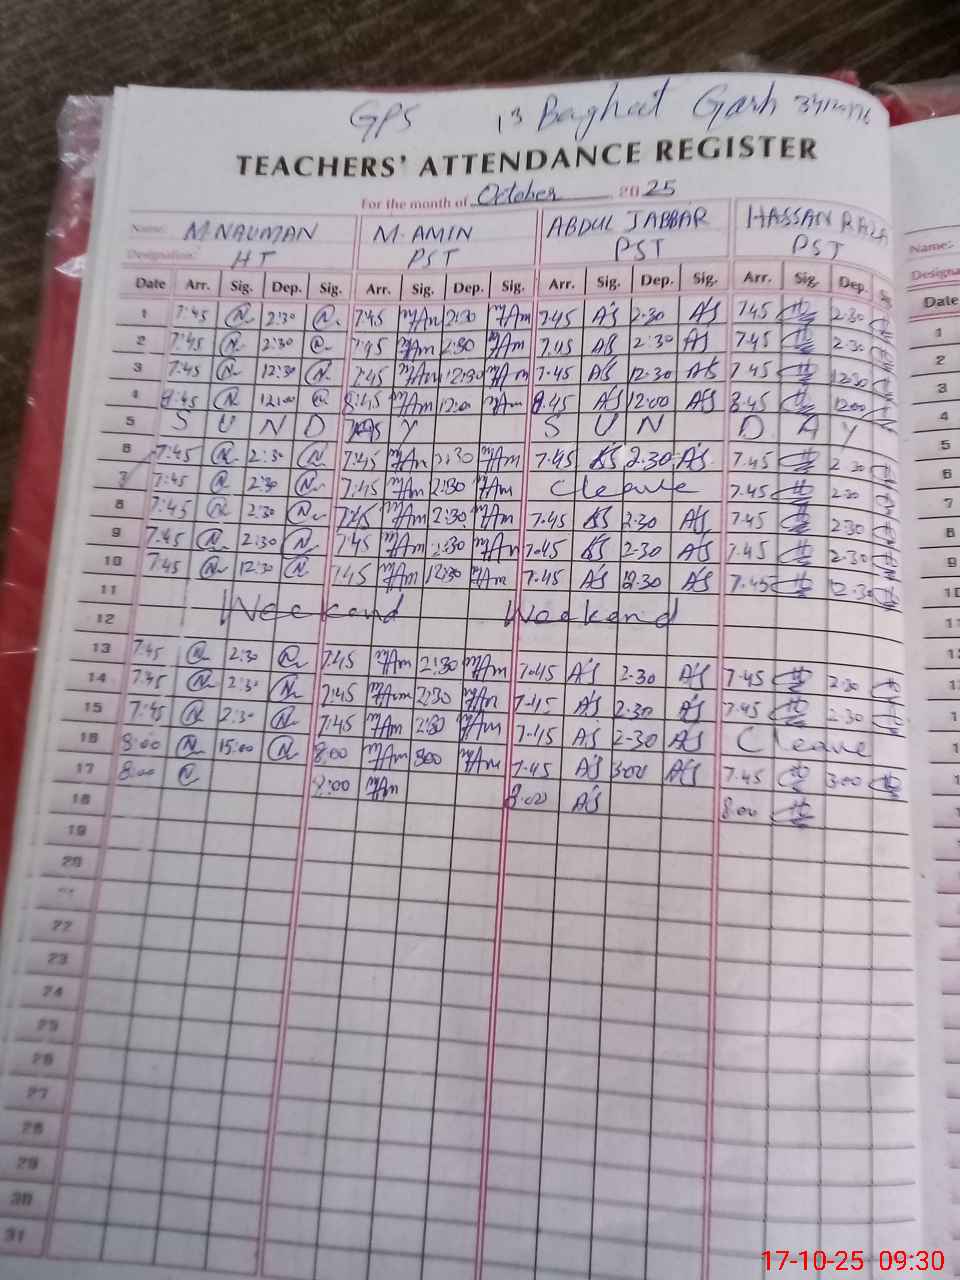 GPS 13 Baghat Garh
TEACHERS' ATTENDANCE REGISTER
For the month of October 2025
Name: M.NAUMAN M. AMIN ABDUL JABBAR HASSAN RAZA
Designation: HT PST PST PST
Date Arr. Sig. Dep. Sig. Arr. Sig. Dep. Sig. Arr. Sig. Dep. Sig. Arr. Sig. Dep. Sig.
1 7:45 2:30 7:45 2:30 7.45 AS 2.30 AS 7.45 2.30
2 7:45 2:30 7:45 2:30 7.45 AS 2:30 AS 7.45 2.30
3 7:45 12:30 7:45 12:30 7.45 AS 12.30 AS 7.45 12.30
4 8:45 12:00 8:45 12:00 8.45 AS 12:00 AS 8.45 1200
5 S U N D A Y S U N D A Y
6 7:45 2:30 7:45 2:30 7.45 AS 2.30 AS 7.45 2.30
7 7:45 2:30 7:45 2:30 C leave 7.45 2.30
8 7:45 2:30 7:45 2:30 7.45 AS 2.30 AS 7.45 2.30
9 7:45 2:30 7:45 2:30 7.45 AS 2.30 AS 7.45 2.30
10 7:45 12:30 7:45 12:30 7.45 AS 12.30 AS 7.45 12.30
11
12 Weekend Weekend
13 7:45 2:30 7:45 2:30 7.45 AS 2.30 AS 7.45 2.30
14 7:45 2:30 7:45 2:30 7.45 AS 2.30 AS 7.45 2.30
15 7:45 2:30 7:45 2:30 7.45 AS 2.30 AS C leave
16 8:00 15:00 8:00 300 7.45 AS 300 AS 7.45 300
17 8:00 8:00 8.00 AS 8.00
18
19
20
22
23
24
25
26
27
28
29
30
31
Name:
Date
1
2
3
4
5
6
7
8
9
10
17-10-25 09:30